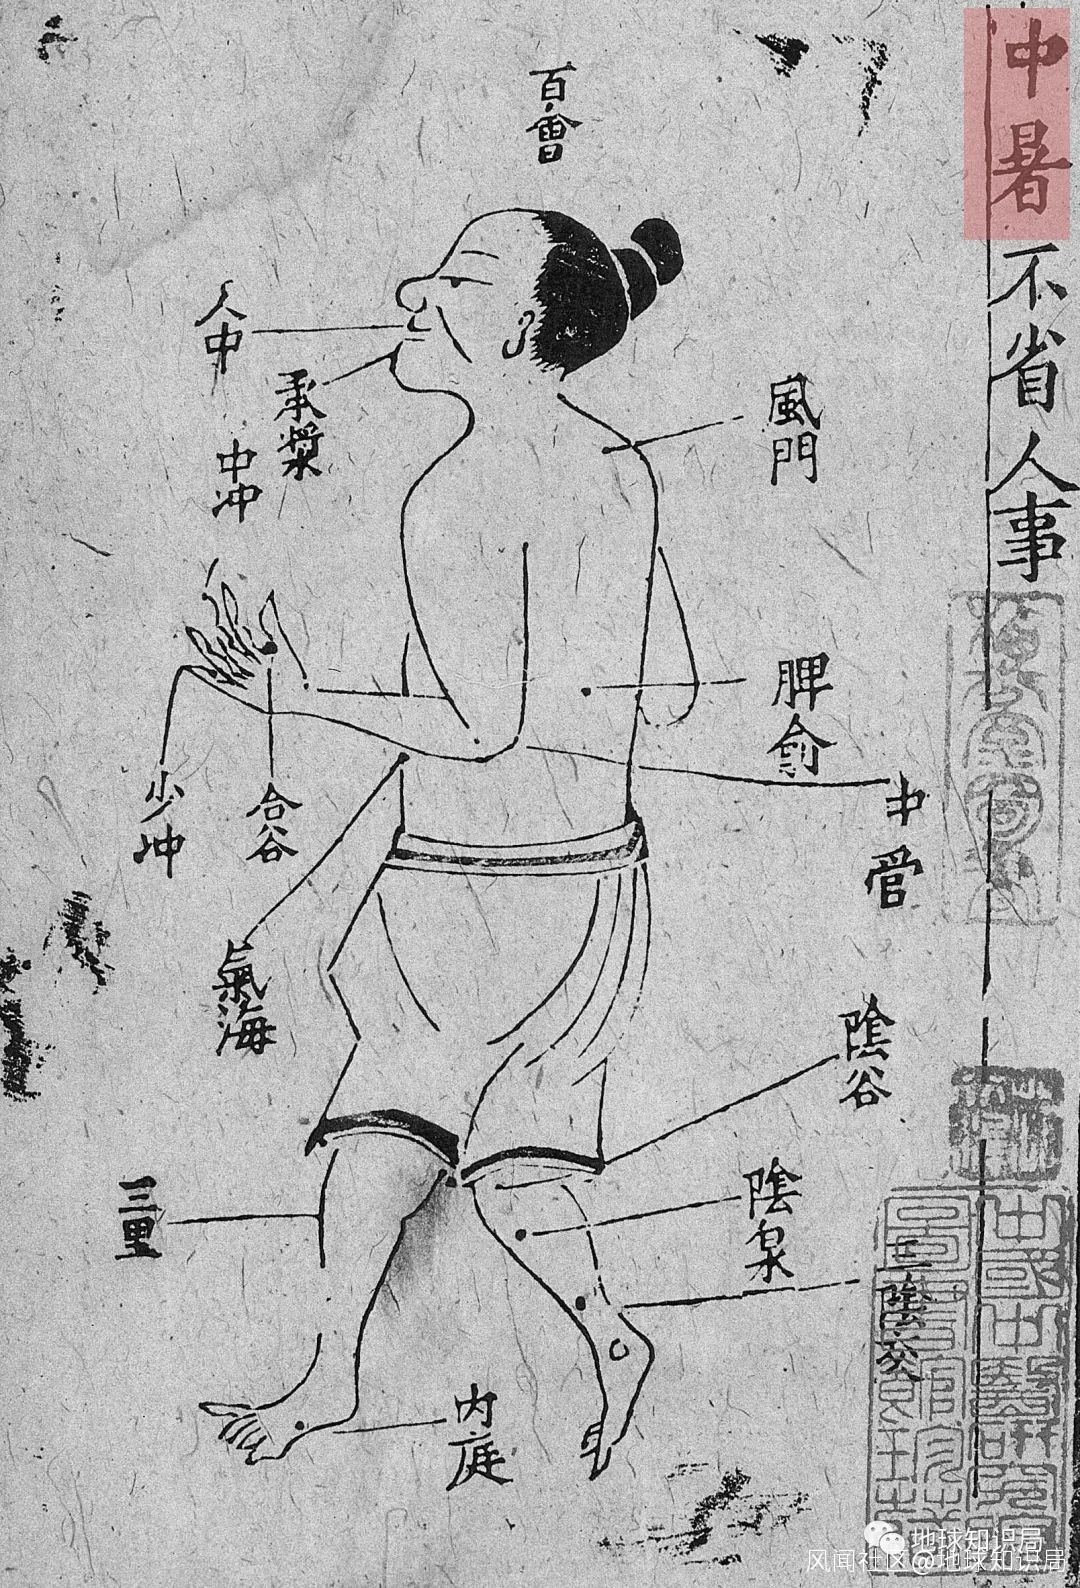 中暑不省人事
百會
人中
承漿
中冲
風門
脾俞
少冲
合谷
中管
氣海
陰谷
三里
陰泉
三陰交
内庭
地球知识局
风闻社区@地球知识局